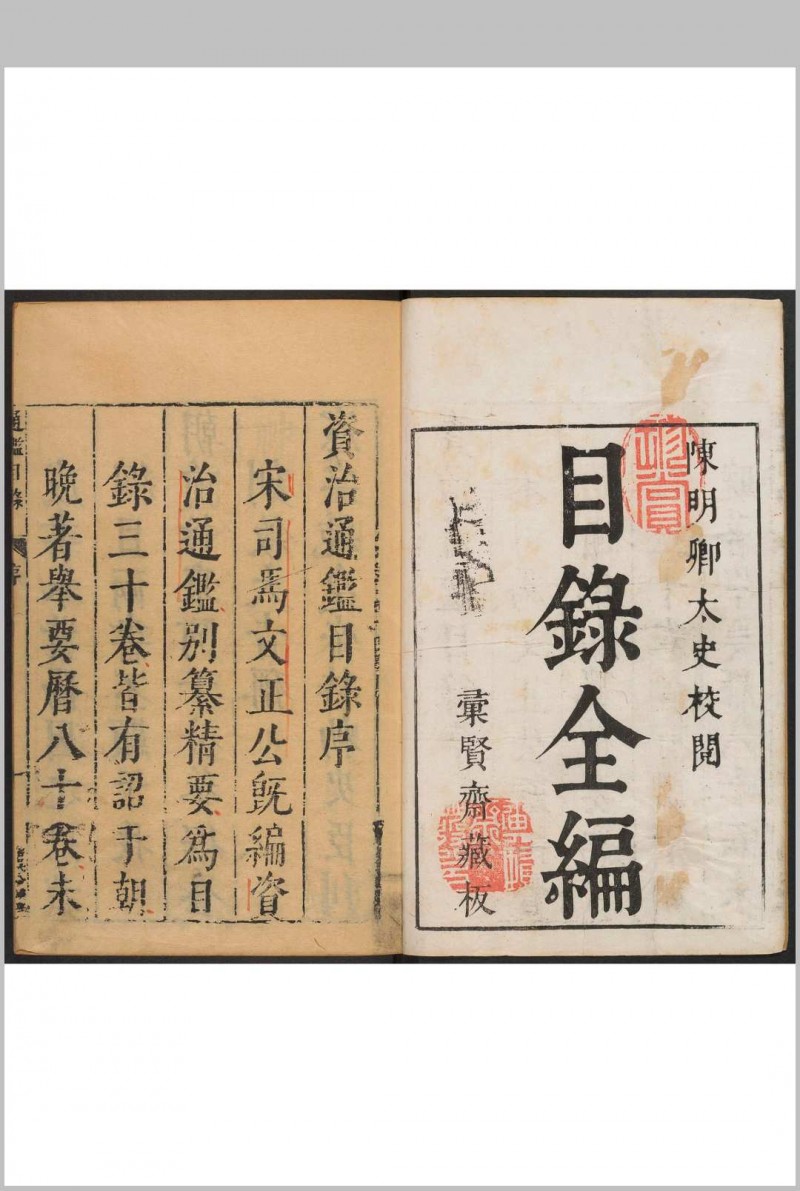 陳明卿太史校閱
目錄全編
彙賢齋藏板
資治通鑑目錄序
宋司馬文正公旣編資
治通鑑別纂精要爲目
錄三十卷皆有詔于朝
晚著舉要曆八十卷未
通鑑目錄
序